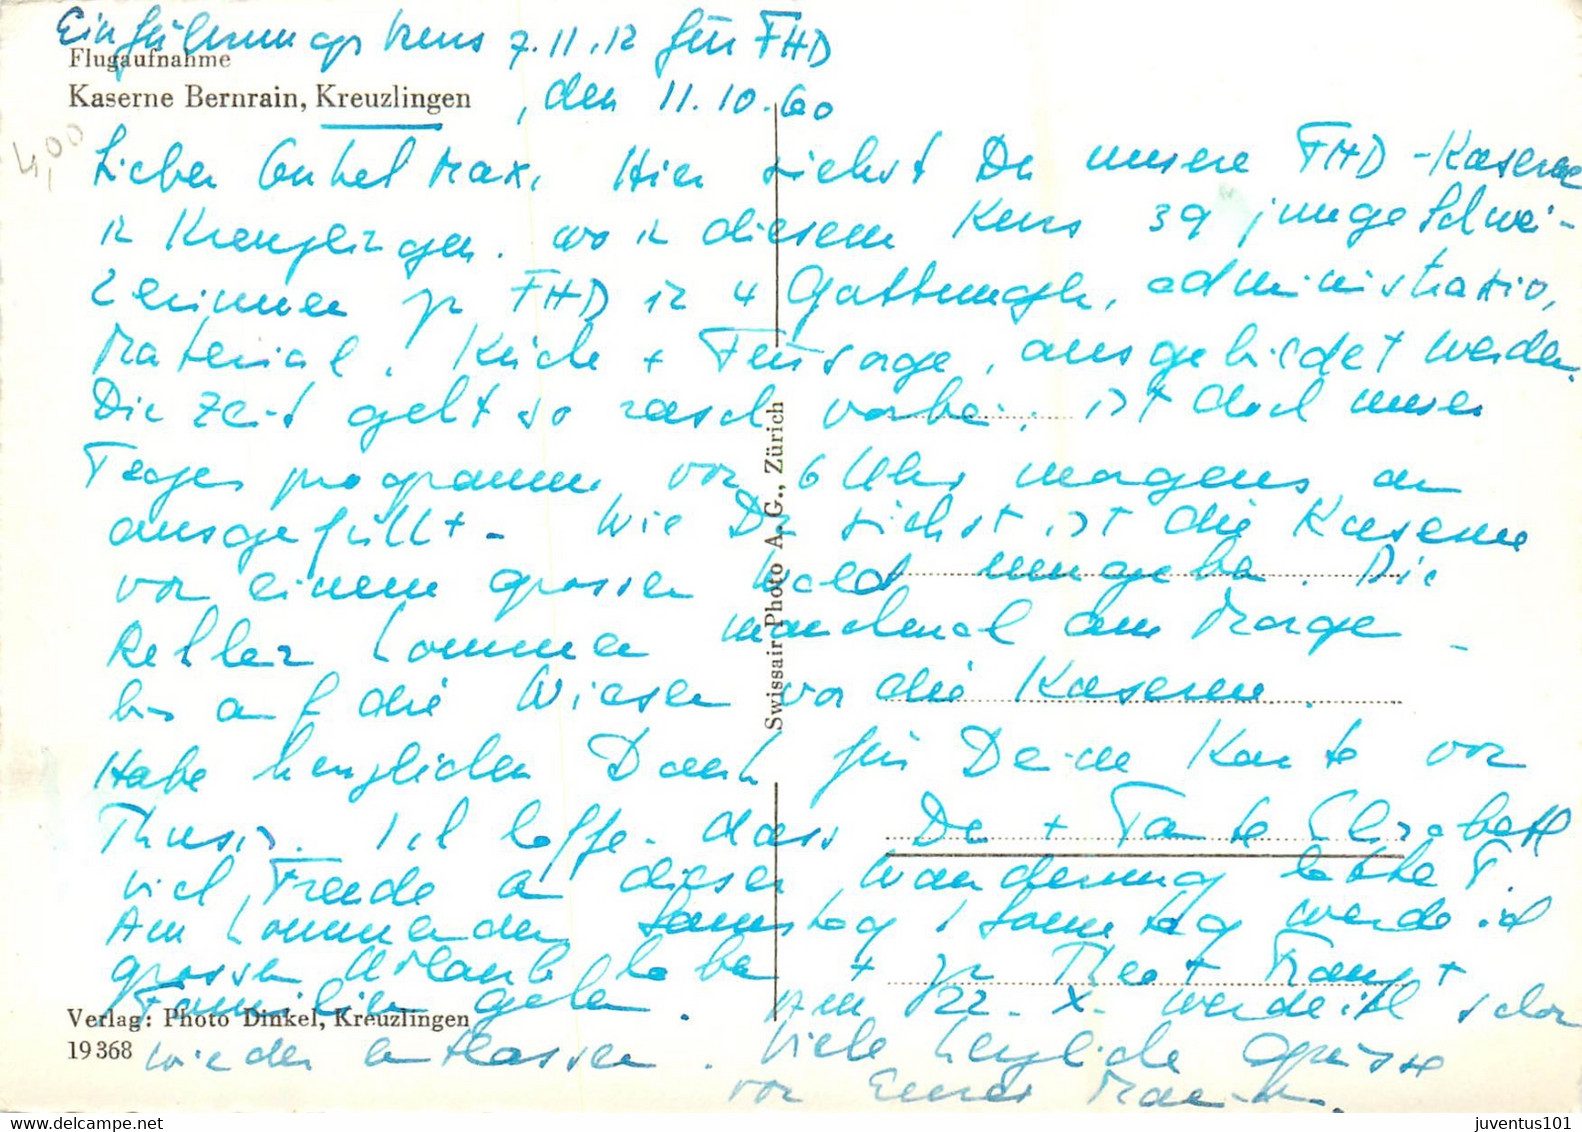 Einführungskurs 7.11.12 für FHD
Flugaufnahme
Kaserne Bernrain, Kreuzlingen
, den 11.10.60
4,00
Lieber Onkel Max, Hier siehst Du unsere FHD-Kaserne
in Kreuzlingen, wo in diesem Kurs 39 junge Schwei-
zerinnen zu FHD in 4 Gattungen, administrativ,
Material, Küche + Fürsorge, ausgebildet werden.
Die Zeit geht so rasch vorbei, ist doch unser
Tagesprogramm von 6 Uhr morgens an
ausgefüllt. Wie Du siehst ist die Kaserne
von einem grossen Wald umgeben. Die
Rehlein kommen manchmal am Morgen
bis auf die Wiesen vor die Kaserne.
Habe herzlichen Dank für Deine Karte von
Thusis. Ich hoffe, dass Du + Tante Elisabeth
viel Freude an dieser Wanderung hattet.
Am kommenden Samstag / Sonntag werde ich
grossen Urlaub haben + zu Theo +
Familien gehen. Am 22. X. werde ich schon
wieder entlassen. Viele herzliche Grüsse
von Eurer
Verlag: Photo Dinkel, Kreuzlingen
19368
Swissair-Photo A. G., Zürich
juventus101